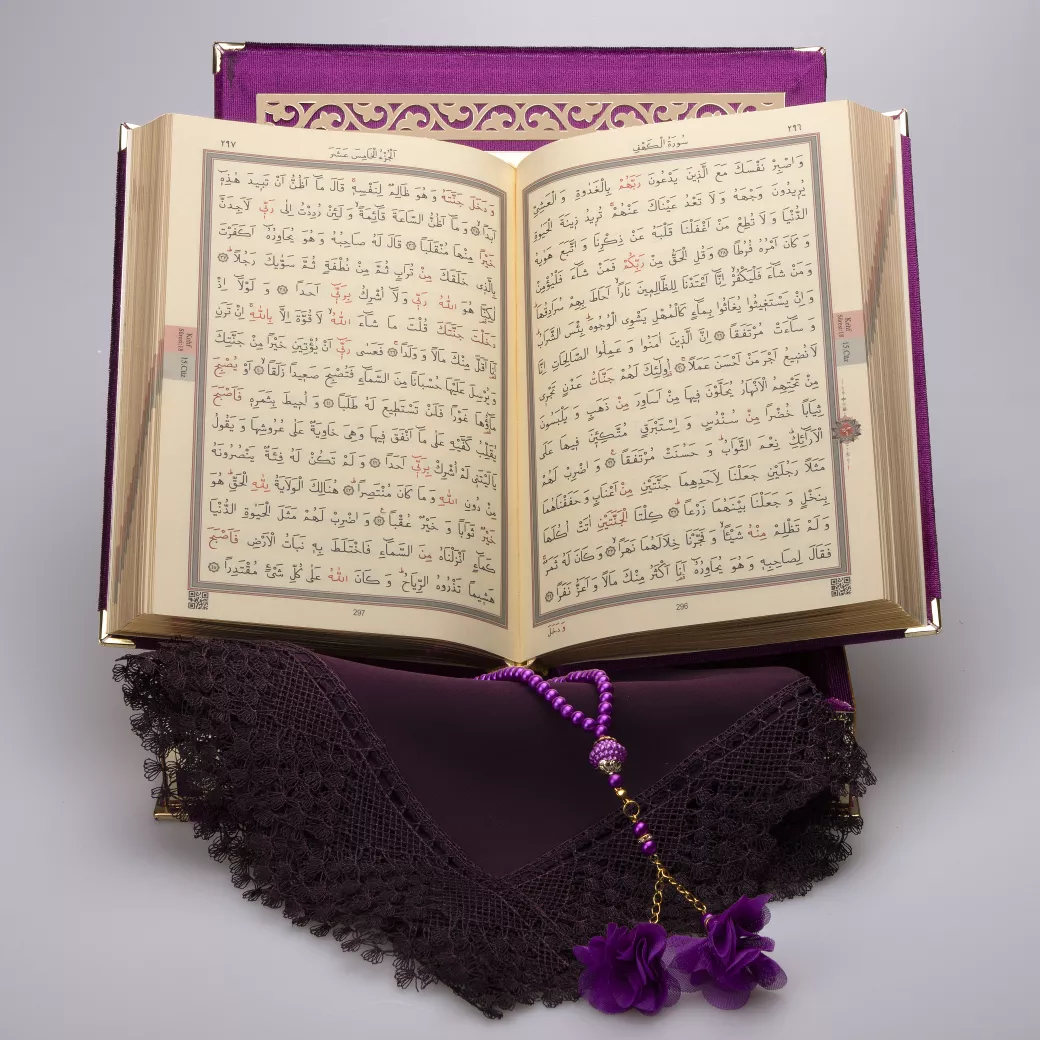 ٢٩٦
سُورَةُ الْكَهْفِ
وَاصْبِرْ نَفْسَكَ مَعَ الَّذِينَ يَدْعُونَ رَبَّهُمْ بِالْغَدٰوةِ وَالْعَشِىِّ
يُرِيدُونَ وَجْهَهُ وَلَا تَعْدُ عَيْنَاكَ عَنْهُمْ تُرِيدُ زِينَةَ الْحَيٰوةِ
الدُّنْيَا وَلَا تُطِعْ مَنْ اَغْفَلْنَا قَلْبَهُ عَنْ ذِكْرِنَا وَاتَّبَعَ هَوٰيهُ
وَكَانَ اَمْرُهُ فُرُطًا ۞ وَقُلِ الْحَقُّ مِنْ رَبِّكُمْ فَمَنْ شَٓاءَ فَلْيُؤْمِنْ
وَمَنْ شَٓاءَ فَلْيَكْفُرْ اِنَّٓا اَعْتَدْنَا لِلظَّالِمِينَ نَارًا اَحَاطَ بِهِمْ سُرَادِقُهَا
وَاِنْ يَسْتَغِيثُوا يُغَاثُوا بِمَٓاءٍ كَالْمُهْلِ يَشْوِى الْوُجُوهَ بِئْسَ الشَّرَابُ
وَسَٓاءَتْ مُرْتَفَقًا ۞ اِنَّ الَّذِينَ اٰمَنُوا وَعَمِلُوا الصَّالِحَاتِ اِنَّا
لَا نُضِيعُ اَجْرَ مَنْ اَحْسَنَ عَمَلًا ۞ اُولٰٓئِكَ لَهُمْ جَنَّاتُ عَدْنٍ تَجْرِى
مِنْ تَحْتِهِمُ الْاَنْهَارُ يُحَلَّوْنَ فِيهَا مِنْ اَسَاوِرَ مِنْ ذَهَبٍ وَيَلْبَسُونَ
ثِيَابًا خُضْرًا مِنْ سُنْدُسٍ وَاِسْتَبْرَقٍ مُتَّكِئِينَ فِيهَا عَلَى
الْاَرَٓائِكِ نِعْمَ الثَّوَابُ وَحَسُنَتْ مُرْتَفَقًا ۞ وَاضْرِبْ لَهُمْ
مَثَلًا رَجُلَيْنِ جَعَلْنَا لِاَحَدِهِمَا جَنَّتَيْنِ مِنْ اَعْنَابٍ وَحَفَفْنَاهُمَا
بِنَخْلٍ وَجَعَلْنَا بَيْنَهُمَا زَرْعًا ۞ كِلْتَا الْجَنَّتَيْنِ اٰتَتْ اُكُلَهَا
وَلَمْ تَظْلِمْ مِنْهُ شَيْـًٔا وَفَجَّرْنَا خِلَالَهُمَا نَهَرًا ۞ وَكَانَ لَهُ ثَمَرٌ
فَقَالَ لِصَاحِبِهِ وَهُوَ يُحَاوِرُهُٓ اَنَا اَكْثَرُ مِنْكَ مَالًا وَاَعَزُّ نَفَرًا ۞
وَدَخَلَ
296
Kehf
Sûresi:18
15.Cüz
٢٩٧
اَلْجُزْءُ الْخَامِسَ عَشَرَ
وَدَخَلَ جَنَّتَهُ وَهُوَ ظَالِمٌ لِنَفْسِهِ قَالَ مَٓا اَظُنُّ اَنْ تَبِيدَ هٰذِهِٓ
اَبَدًا ۞ وَمَٓا اَظُنُّ السَّاعَةَ قَٓائِمَةً وَلَئِنْ رُدِدْتُ اِلٰى رَبِّى لَاَجِدَنَّ
خَيْرًا مِنْهَا مُنْقَلَبًا ۞ قَالَ لَهُ صَاحِبُهُ وَهُوَ يُحَاوِرُهُٓ اَكَفَرْتَ
بِالَّذِى خَلَقَكَ مِنْ تُرَابٍ ثُمَّ مِنْ نُطْفَةٍ ثُمَّ سَوّٰيكَ رَجُلًا ۞
لٰكِنَّا هُوَ اللّٰهُ رَبِّى وَلَٓا اُشْرِكُ بِرَبِّٓى اَحَدًا ۞ وَلَوْلَٓا اِذْ
دَخَلْتَ جَنَّتَكَ قُلْتَ مَا شَٓاءَ اللّٰهُ لَا قُوَّةَ اِلَّا بِاللّٰهِ اِنْ تَرَنِ
اَنَا اَقَلَّ مِنْكَ مَالًا وَوَلَدًا ۞ فَعَسٰى رَبِّٓى اَنْ يُؤْتِيَنِ خَيْرًا مِنْ جَنَّتِكَ
وَيُرْسِلَ عَلَيْهَا حُسْبَانًا مِنَ السَّمَٓاءِ فَتُصْبِحَ صَعِيدًا زَلَقًا ۞ اَوْ يُصْبِحَ
مَٓاؤُهَا غَوْرًا فَلَنْ تَسْتَطِيعَ لَهُ طَلَبًا ۞ وَاُحِيطَ بِثَمَرِهِ فَاَصْبَحَ
يُقَلِّبُ كَفَّيْهِ عَلٰى مَٓا اَنْفَقَ فِيهَا وَهِىَ خَاوِيَةٌ عَلٰى عُرُوشِهَا وَيَقُولُ
يَالَيْتَنِى لَمْ اُشْرِكْ بِرَبِّٓى اَحَدًا ۞ وَلَمْ تَكُنْ لَهُ فِئَةٌ يَنْصُرُونَهُ
مِنْ دُونِ اللّٰهِ وَمَا كَانَ مُنْتَصِرًا ۞ هُنَالِكَ الْوَلَايَةُ لِلّٰهِ الْحَقِّ هُوَ
خَيْرٌ ثَوَابًا وَخَيْرٌ عُقْبًا ۞ وَاضْرِبْ لَهُمْ مَثَلَ الْحَيٰوةِ الدُّنْيَا
كَمَٓاءٍ اَنْزَلْنَاهُ مِنَ السَّمَٓاءِ فَاخْتَلَطَ بِهِ نَبَاتُ الْاَرْضِ فَاَصْبَحَ
هَشِيمًا تَذْرُوهُ الرِّيَاحُ وَكَانَ اللّٰهُ عَلٰى كُلِّ شَىْءٍ مُقْتَدِرًا ۞
297
Kehf
Sûresi:18
15.Cüz